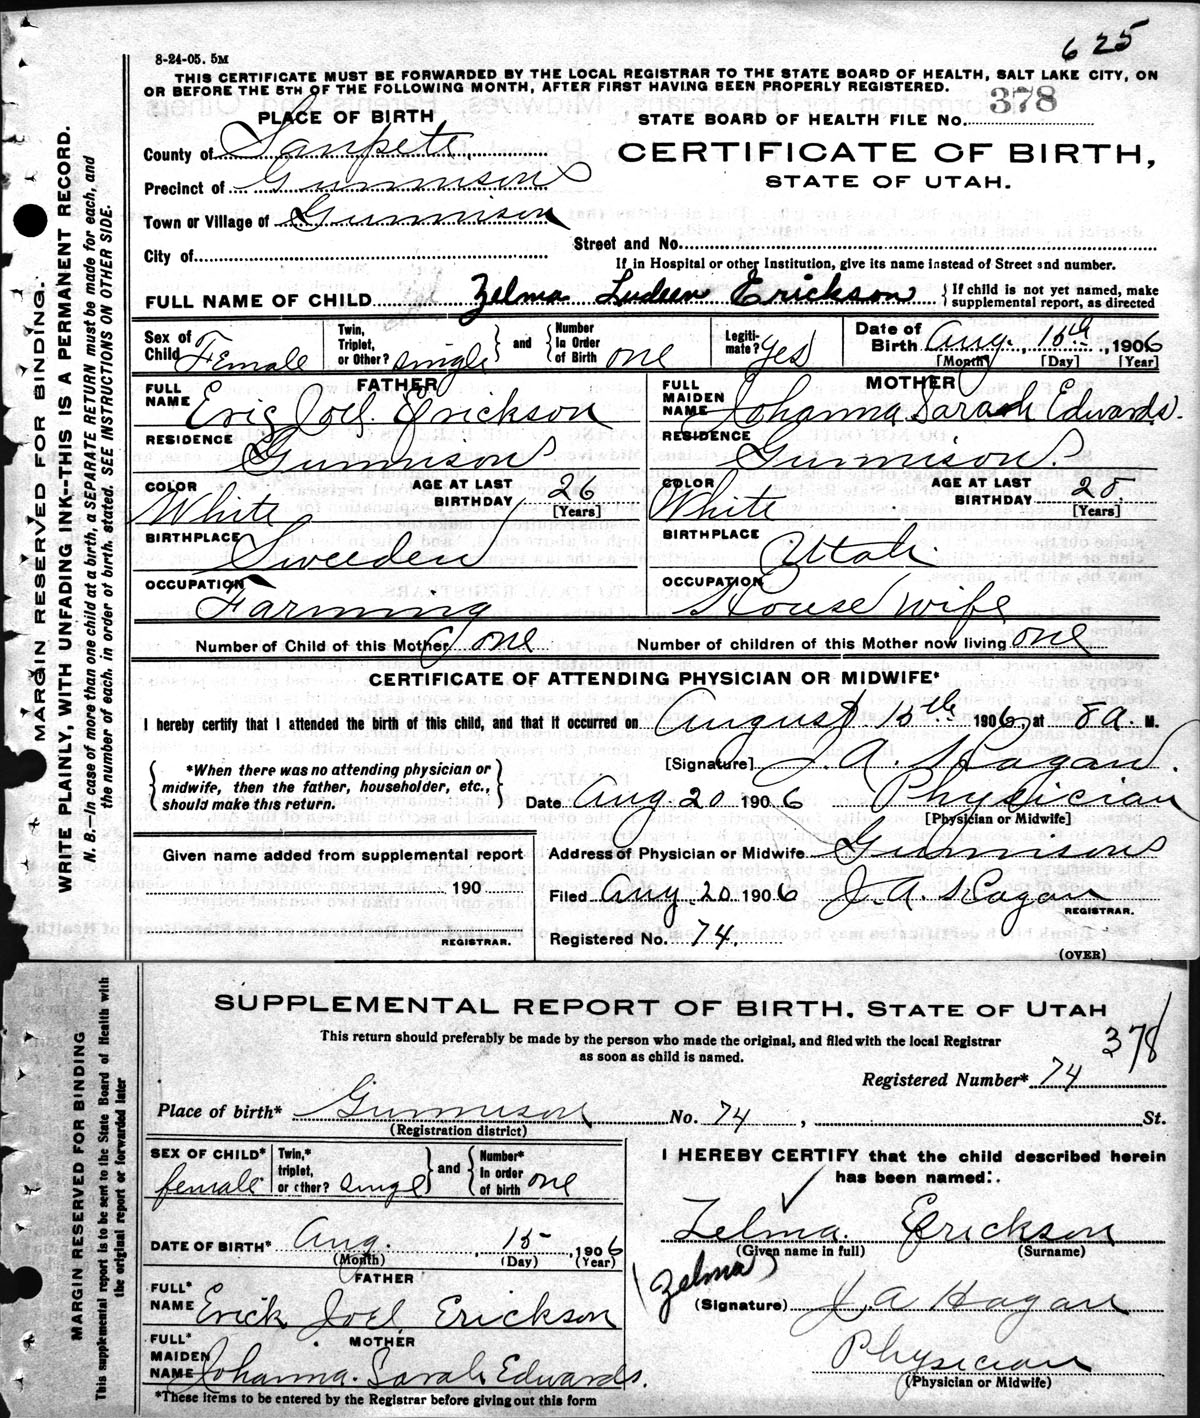 625
8-24-05. 5M
THIS CERTIFICATE MUST BE FORWARDED BY THE LOCAL REGISTRAR TO THE STATE BOARD OF HEALTH, SALT LAKE CITY, ON
OR BEFORE THE 5TH OF THE FOLLOWING MONTH, AFTER FIRST HAVING BEEN PROPERLY REGISTERED.
PLACE OF BIRTH
STATE BOARD OF HEALTH FILE No. 378
County of Sanpete.
CERTIFICATE OF BIRTH,
STATE OF UTAH.
Precinct of Gunnison
Town or Village of Gunnison
Street and No.
City of
If in Hospital or other Institution, give its name instead of Street and number.
FULL NAME OF CHILD Zelma Ludeen Erickson { If child is not yet named, make supplemental report, as directed
Sex of Child Female Twin, Triplet, or Other? single } and { Number In Order of Birth one Legiti- mate? yes Date of Birth Aug. 15th, 1906
[Month] [Day] [Year]
FATHER MOTHER
FULL NAME Eric Joel Erickson FULL MAIDEN NAME Johanna Sarah Edwards.
RESIDENCE Gunnison RESIDENCE Gunnison.
COLOR White AGE AT LAST BIRTHDAY 26 [Years] COLOR White AGE AT LAST BIRTHDAY 25 [Years]
BIRTHPLACE Sweeden BIRTHPLACE Utah.
OCCUPATION Farming OCCUPATION House wife
Number of Child of this Mother one Number of children of this Mother now living one
CERTIFICATE OF ATTENDING PHYSICIAN OR MIDWIFE*
I hereby certify that I attended the birth of this child, and that it occurred on August 15th 1906, at 8 a. M.
{ *When there was no attending physician or midwife, then the father, householder, etc., should make this return. }
[Signature] J. A. Hagan.
Date Aug. 20 1906 Physician
[Physician or Midwife]
Given name added from supplemental report
Address of Physician or Midwife Gunnison
190
Filed Aug. 20 1906 J. A. Hagan
REGISTRAR.
REGISTRAR.
Registered No. 74.
(OVER)
MARGIN RESERVED FOR BINDING.
WRITE PLAINLY, WITH UNFADING INK--THIS IS A PERMANENT RECORD.
N. B.—In case of more than one child at a birth, a SEPARATE RETURN must be made for each, and
the number of each, in order of birth, stated. SEE INSTRUCTIONS ON OTHER SIDE.
SUPPLEMENTAL REPORT OF BIRTH, STATE OF UTAH
This return should preferably be made by the person who made the original, and filed with the local Registrar
as soon as child is named.
378
Registered Number* 74
Place of birth* Gunnison No. 74, St.
(Registration district)
SEX OF CHILD* female Twin,* triplet, or other? singl } and { Number* In order of birth one
I HEREBY CERTIFY that the child described herein
has been named:
Zelma. Erickson
(Given name in full) (Surname)
DATE OF BIRTH* Aug. 15, 1906
(Month) (Day) (Year)
Zelma
FATHER
FULL* NAME Erick Joel Erickson
(Signature) J A Hagan
MOTHER
FULL* MAIDEN NAME Johanna. Sarah Edwards.
Physician
(Physician or Midwife)
*These items to be entered by the Registrar before giving out this form
MARGIN RESERVED FOR BINDING
This supplemental report is to be sent to the State Board of Health with
the original report or forwarded later